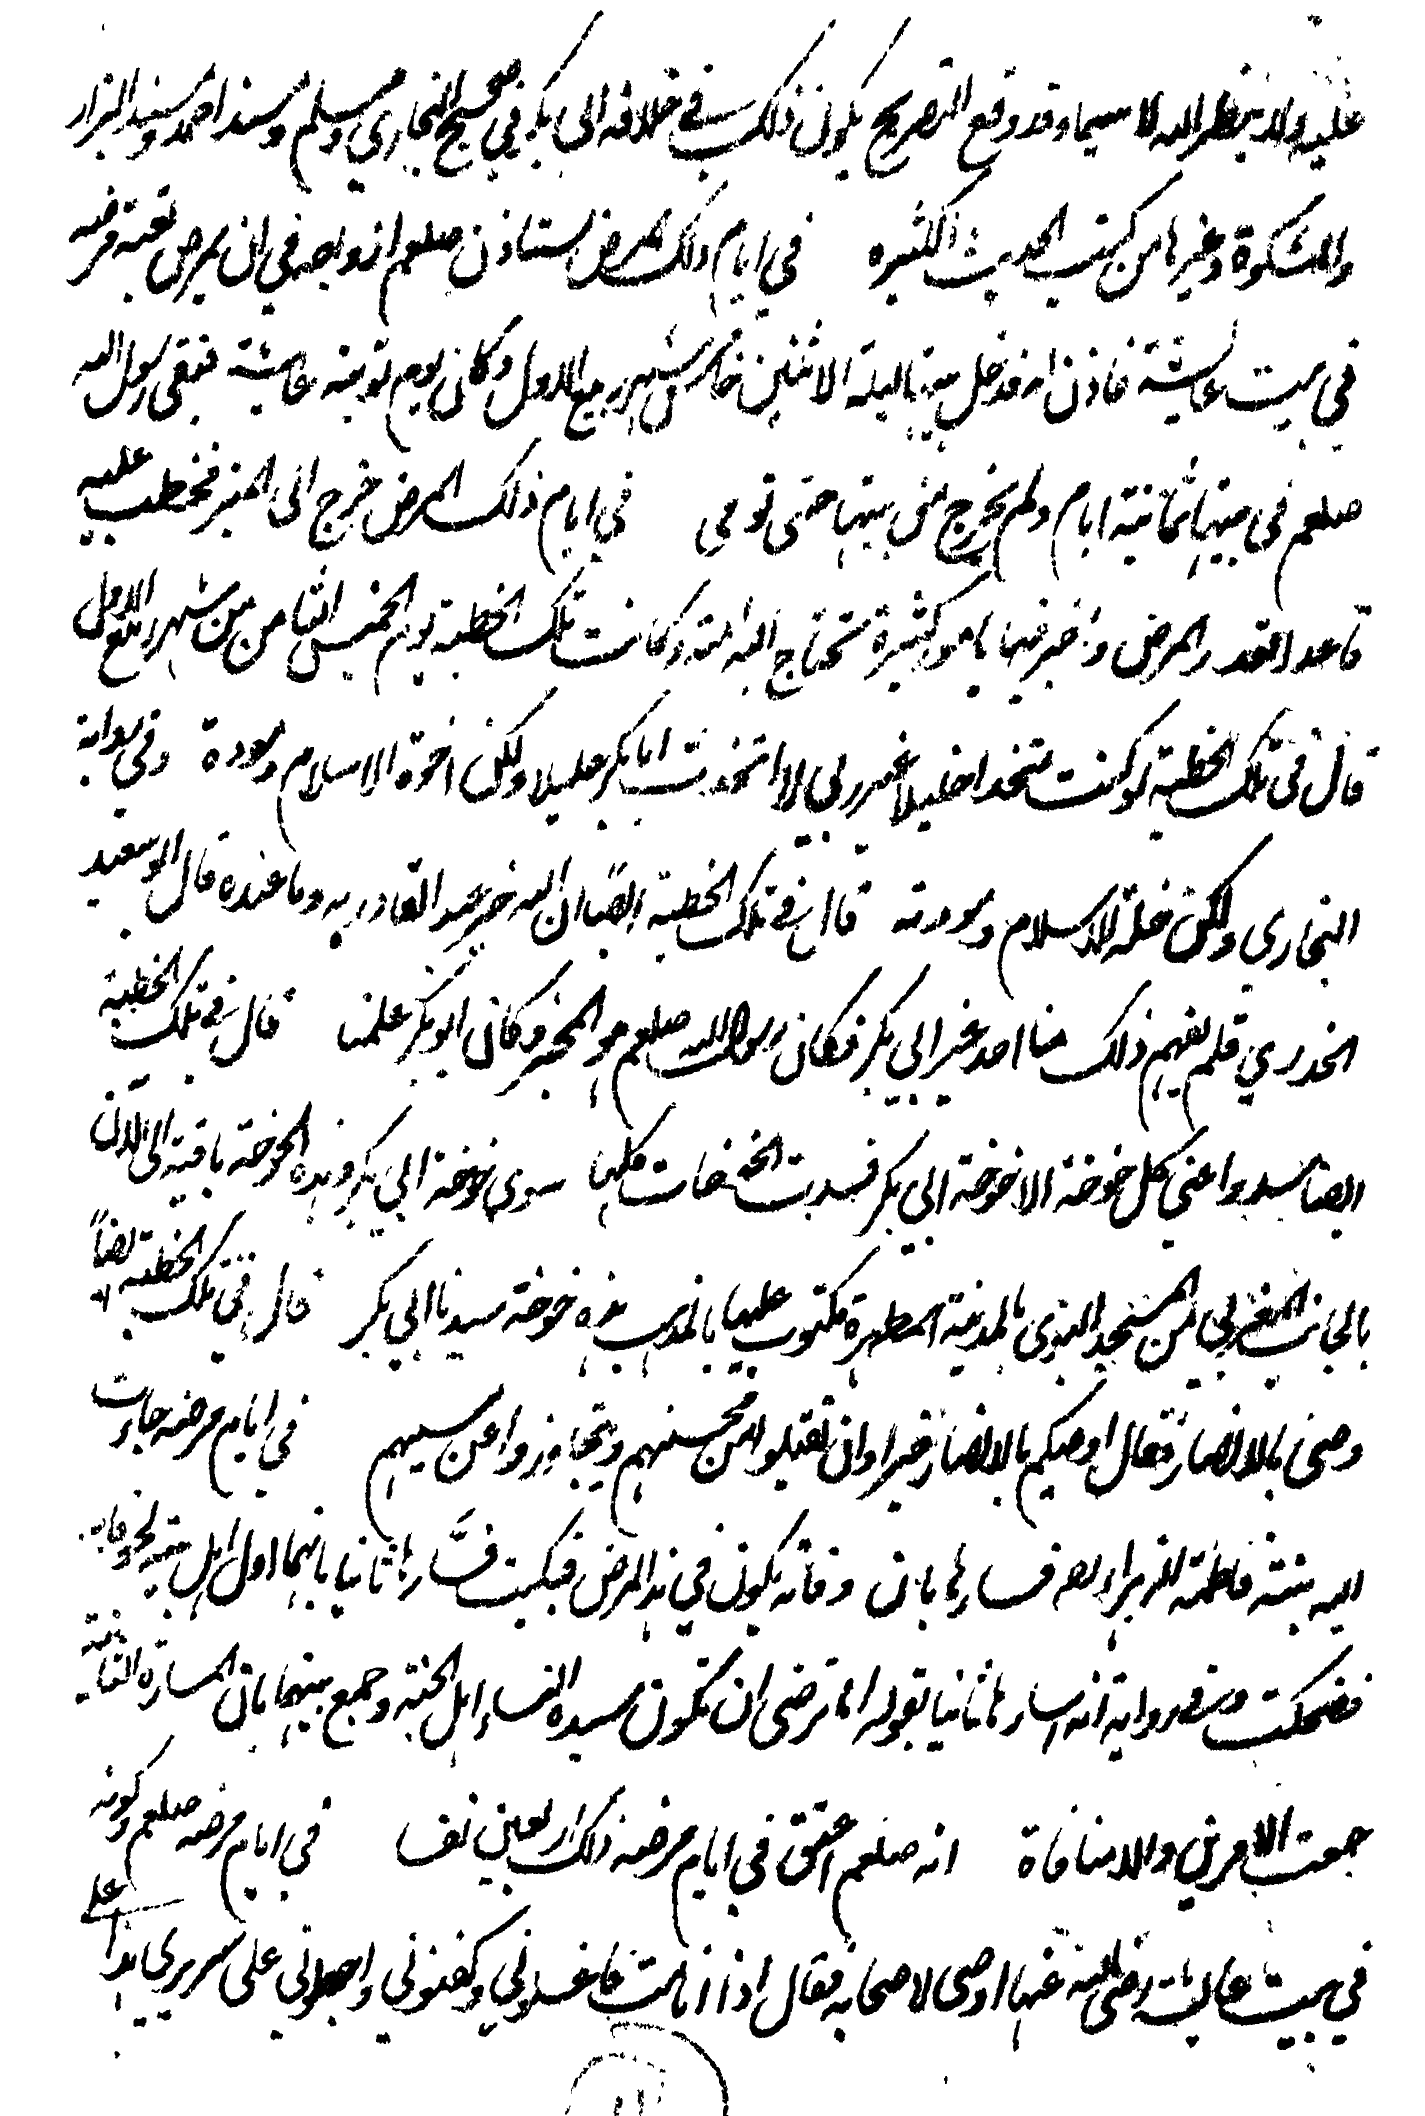 عليه ولا ينظر اليه لا سيما وقد وقع التصريح بكون ذلك في خلافة ابي بكر في صحيح البخاري ومسلم ومسند احمد ومسند البزار
والمشكوة وغيرها من كتب الحديث الكثيره في ايام ذلك المرض استاذن صلعم ازواجه في ان يمرض بقية مرضه
في بيت عايشة فاذن له فدخل بيتها ليلة الاثنين خامس شهر ربيع الاول وكان يوم نوبته عايشة فبقى رسول الله
صلعم في بيتها ثمانية ايام ولم يخرج من بيتها حتى توفى في ايام ذلك المرض خرج الى المنبر فخطب عليه
قاعدا لقدر المرض واخبر فيها بامور كثيرة تحتاج اليه امته وكانت تلك الخطبة يوم الخميس الثامن من شهر ربيع الاول
قال في تلك الخطبة لو كنت متخذا خليلا غير ربي لاتخذت ابا بكر خليلا ولكن اخوة الاسلام ومودة وفي رواية
البخاري ولكن خلة الاسلام ومودته قال في تلك الخطبة ايضًا ان الله خير عبدا لقاء ربه وما عنده قال ابو سعيد
الخدري فلم يفهم ذلك منا احد غير ابي بكر فكان رسول الله صلعم هو المخير وكان ابو بكر اعلمنا قال في تلك الخطبة
ايضا سدوا عني كل خوخة الا خوخة ابي بكر فسدت الخوخات كلها سوى خوخة ابي بكر وهذه الخوخة باقية الى الآن
بالجانب المغربي من المسجد النبوى بالمدينة المطهرة مكتوب عليها بالذهب هذه خوخة سيدنا ابي بكر قال في تلك الخطبة ايضاً
وصى بالانصار فقال اوصيكم بالانصار خيرا وان تقبلوا من محسنهم وتجاوزوا عن مسيهم في ايام مرضه جاءت
اليه بنته فاطمة الزهراء فسارها بان وفاته يكون في هذا المرض فبكيت فسَّارها ثانيا بانها اول اهل بيته لحوقا به
فضحكت وفي رواية انه سارها ثانيا بقوله اما ترضى ان تكون سيدة النساء اهل الجنة وجمع بينهما بان المسارة الثانية
جمعت الامرين والا منافاة انه صلعم اعتق في ايام مرضه ذلك اربعين نفسا في ايام مرضه صلعم وكونه
في بيت عايشة رضى الله عنها اوصى لاصحابه فقال اذا انا مت فاغسلوني وكفنوني واجعلوني على سريري هذا
على
١١